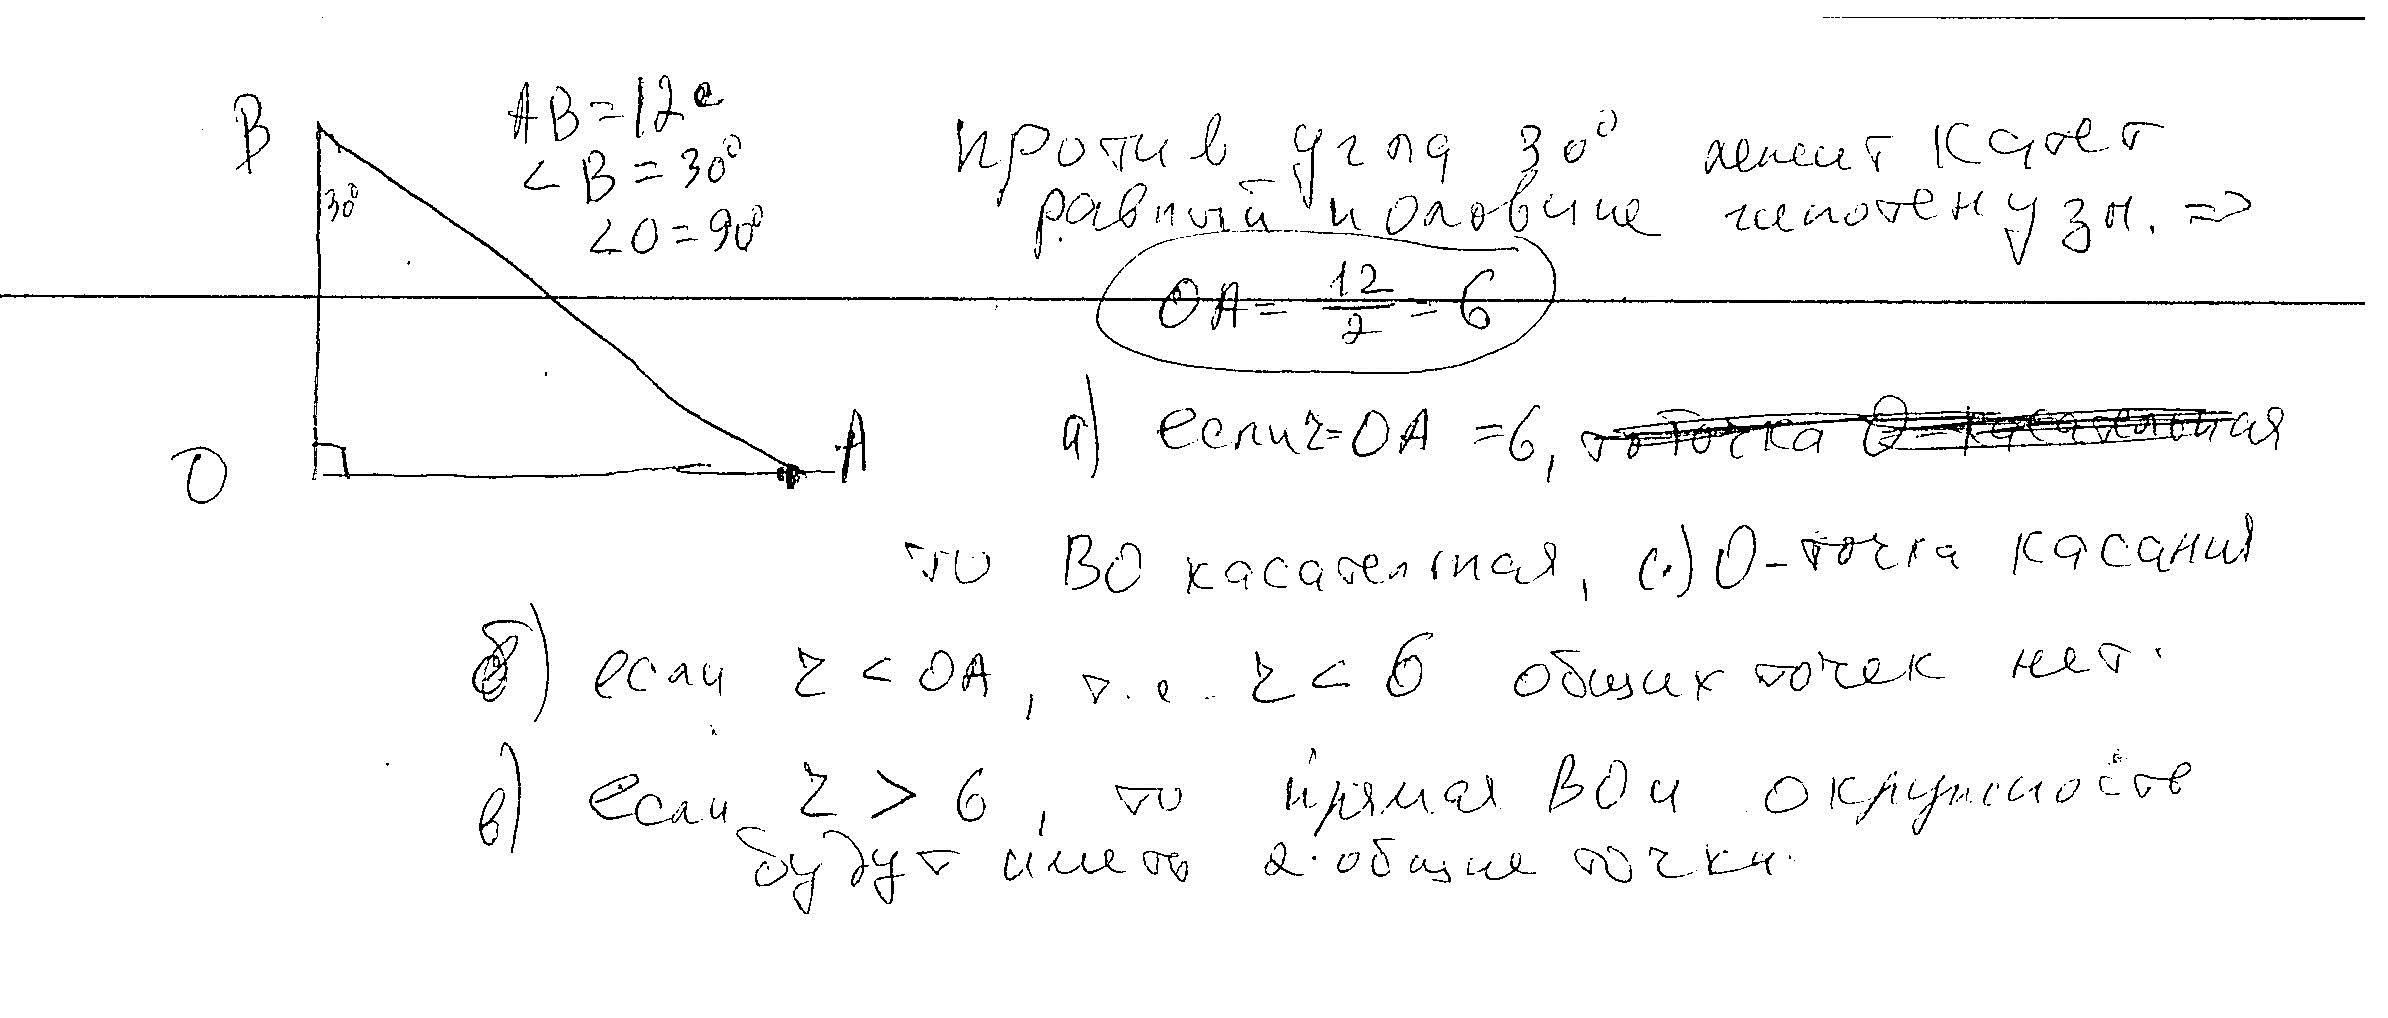 B
30⁰
O
A
AB=12c
<B=30⁰
<O=90⁰
против угла 30⁰ лежит катет
равный половине гипотенузы. =>
OA=12/2=6
а) если r=OA=6,
то BO касательная, (·) O-точка касания
б) если r<OA, т.е. r<6 общих точек нет.
в) если r>6, то прямая BO и окружность
будут иметь 2 общие точки.